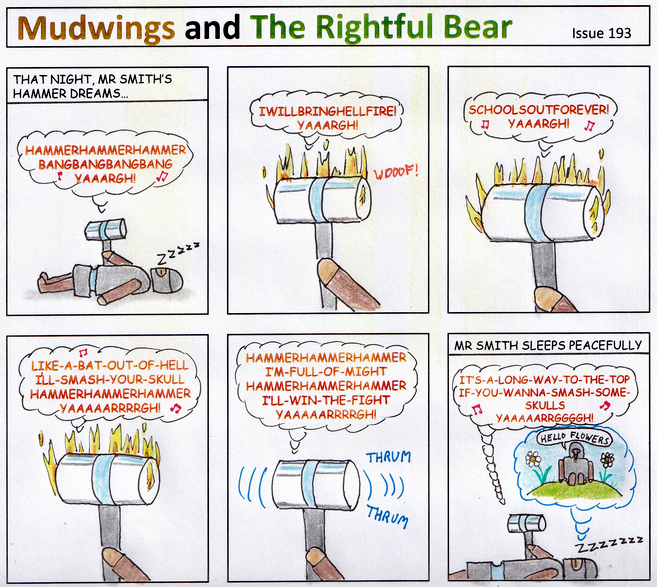 Mudwings and The Rightful Bear
Issue 193
THAT NIGHT, MR SMITH'S
HAMMER DREAMS...
HAMMERHAMMERHAMMER
BANGBANGBANGBANG
YAAARGH!
ZZZZZ
IWILLBRINGHELLFIRE!
YAAARGH!
WOOOF!
SCHOOLSOUTFOREVER!
YAAARGH!
LIKE-A-BAT-OUT-OF-HELL
ILL-SMASH-YOUR-SKULL
HAMMERHAMMERHAMMER
YAAAAARRRRGH!
HAMMERHAMMERHAMMER
I'M-FULL-OF-MIGHT
HAMMERHAMMERHAMMER
I'LL-WIN-THE-FIGHT
YAAAAARRRRGH!
THRUM
THRUM
MR SMITH SLEEPS PEACEFULLY
IT'S-A-LONG-WAY-TO-THE-TOP
IF-YOU-WANNA-SMASH-SOME-
SKULLS
YAAAAARRGGGGH!
HELLO FLOWERS
ZZZZZZZ